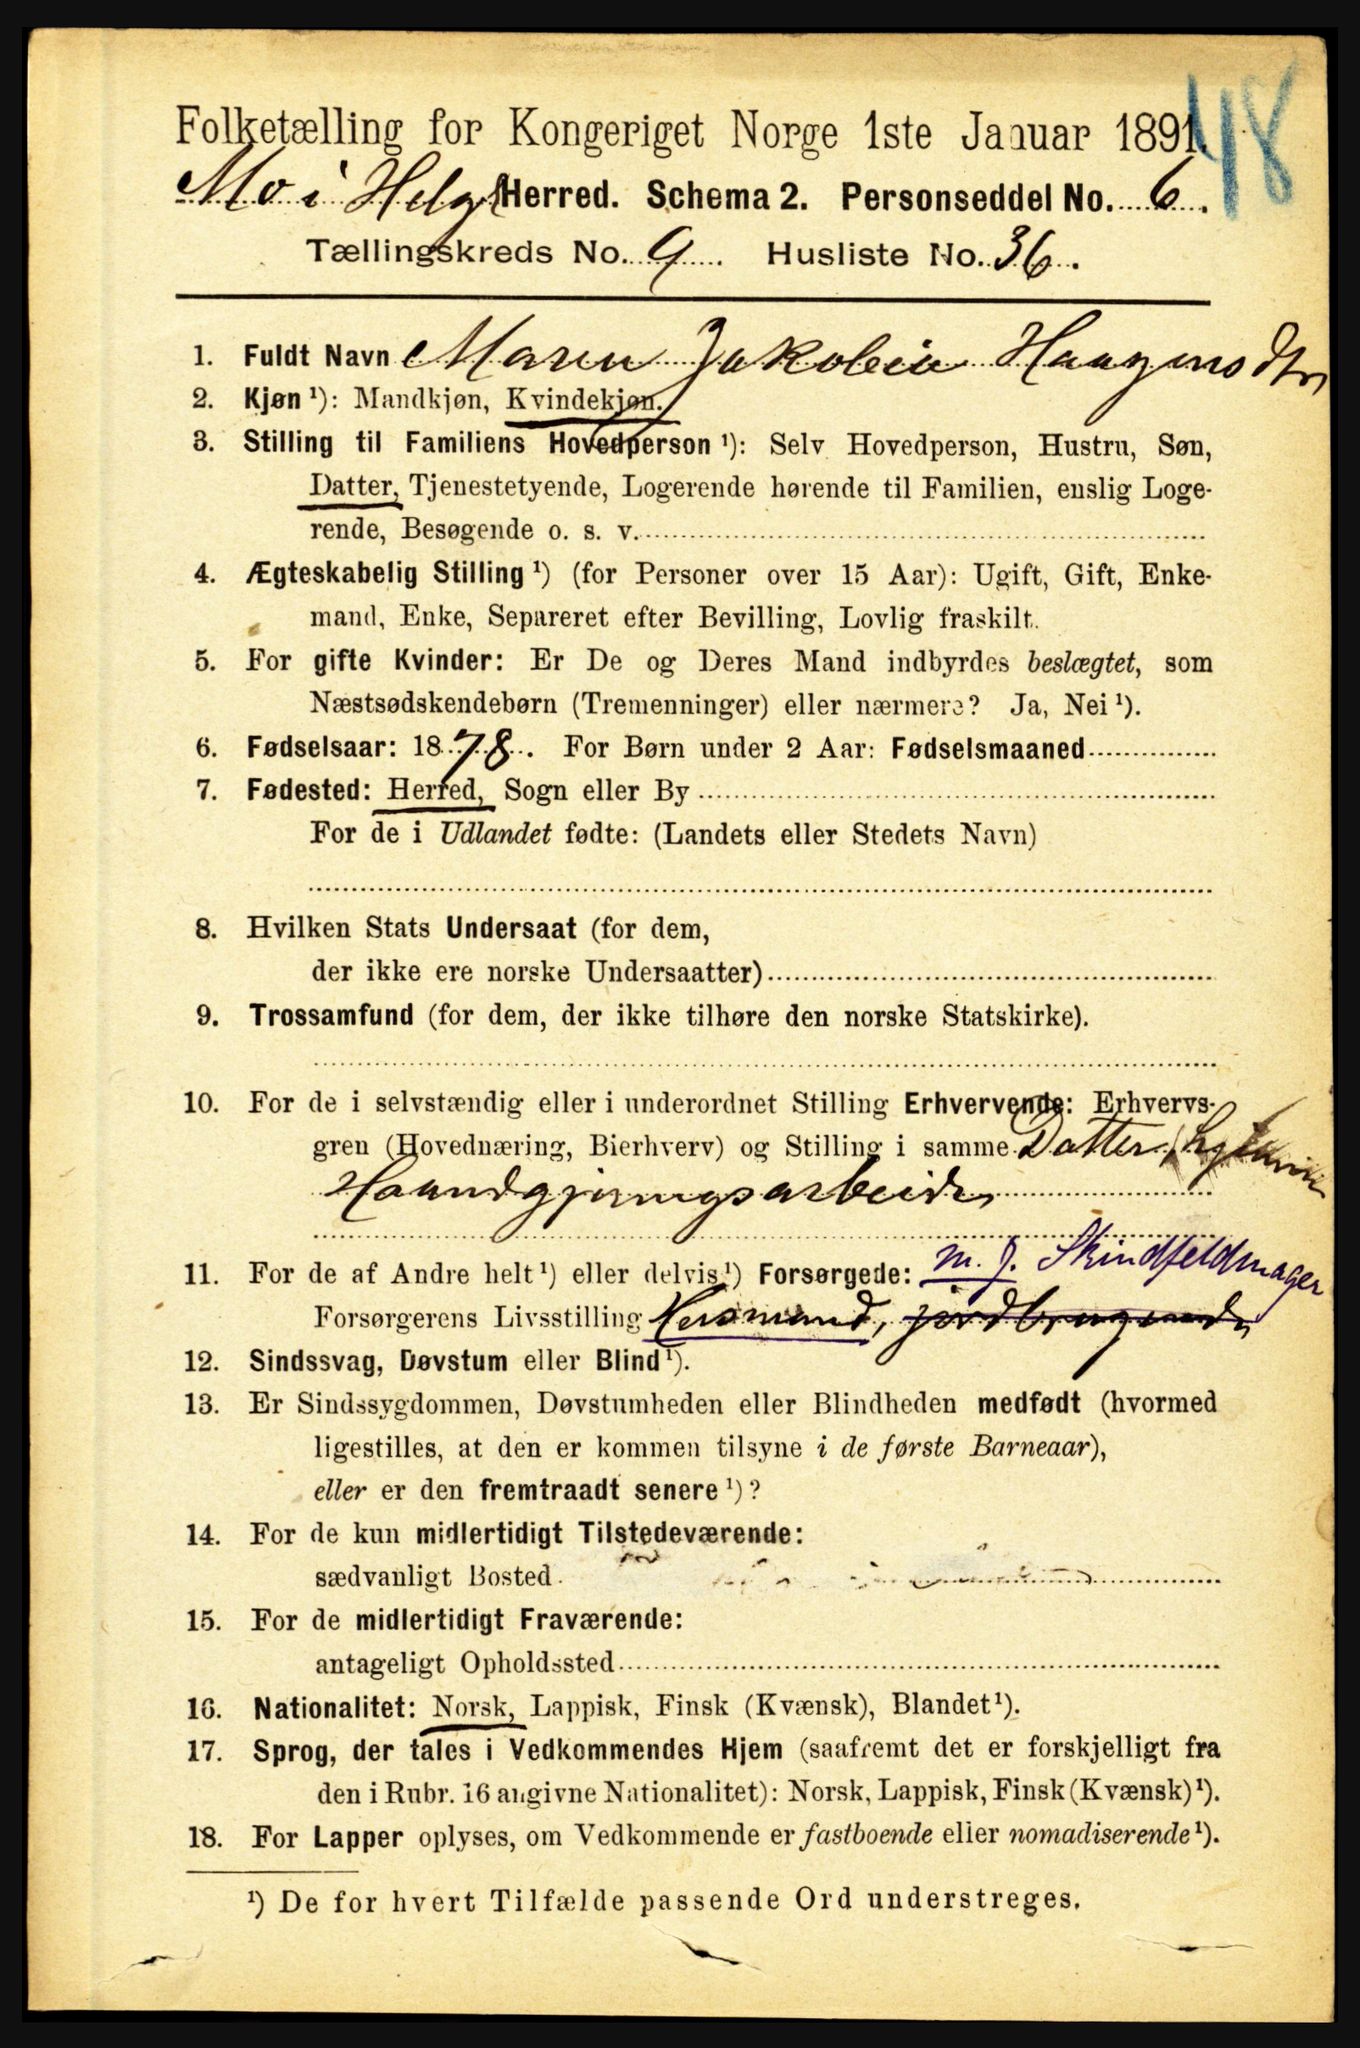 48
Folketælling for Kongeriget Norge 1ste Januar 1891.
Mo i Helgl Herred. Schema 2. Personseddel No. 6.
Tællingskreds No. 9. Husliste No. 36.
1. Fuldt Navn Maren Jakobine Haagensdtr
2. Kjøn ¹): Mandkjøn, Kvindekjøn.
3. Stilling til Familiens Hovedperson ¹): Selv Hovedperson, Hustru, Søn,
Datter, Tjenestetyende, Logerende hørende til Familien, enslig Loge-
rende, Besøgende o. s. v.
4. Ægteskabelig Stilling ¹) (for Personer over 15 Aar): Ugift, Gift, Enke-
mand, Enke, Separeret efter Bevilling, Lovlig fraskilt.
5. For gifte Kvinder: Er De og Deres Mand indbyrdes beslægtet, som
Næstsødskendebørn (Tremenninger) eller nærmere? Ja, Nei ¹).
6. Fødselsaar: 1878. For Børn under 2 Aar: Fødselsmaaned
7. Fødested: Herred, Sogn eller By
For de i Udlandet fødte: (Landets eller Stedets Navn)
8. Hvilken Stats Undersaat (for dem,
der ikke ere norske Undersaatter)
9. Trossamfund (for dem, der ikke tilhøre den norske Statskirke).
10. For de i selvstændig eller i underordnet Stilling Erhvervende: Erhvervs-
gren (Hovednæring, Bierhverv) og Stilling i samme Datter,
Haandgjerningsarbeide
m. J. Skindfeldmager
11. For de af Andre helt ¹) eller delvis ¹) Forsørgede:
Forsørgerens Livsstilling Husmand, jordbrugende
12. Sindssvag, Døvstum eller Blind ¹).
13. Er Sindssygdommen, Døvstumheden eller Blindheden medfødt (hvormed
ligestilles, at den er kommen tilsyne i de første Barneaar),
eller er den fremtraadt senere ¹)?
14. For de kun midlertidigt Tilstedeværende:
sædvanligt Bosted
15. For de midlertidigt Fraværende:
antageligt Opholdssted
16. Nationalitet: Norsk, Lappisk, Finsk (Kvænsk), Blandet ¹).
17. Sprog, der tales i Vedkommendes Hjem (saafremt det er forskjelligt fra
den i Rubr. 16 angivne Nationalitet): Norsk, Lappisk, Finsk (Kvænsk) ¹).
18. For Lapper oplyses, om Vedkommende er fastboende eller nomadiserende ¹).
¹) De for hvert Tilfælde passende Ord understreges.